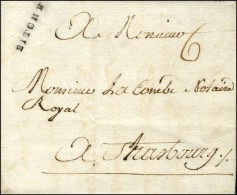 BITCHE
A Monsieur 6
Monsieur La Combe Notaire
Royal
A Strasbourg ./.